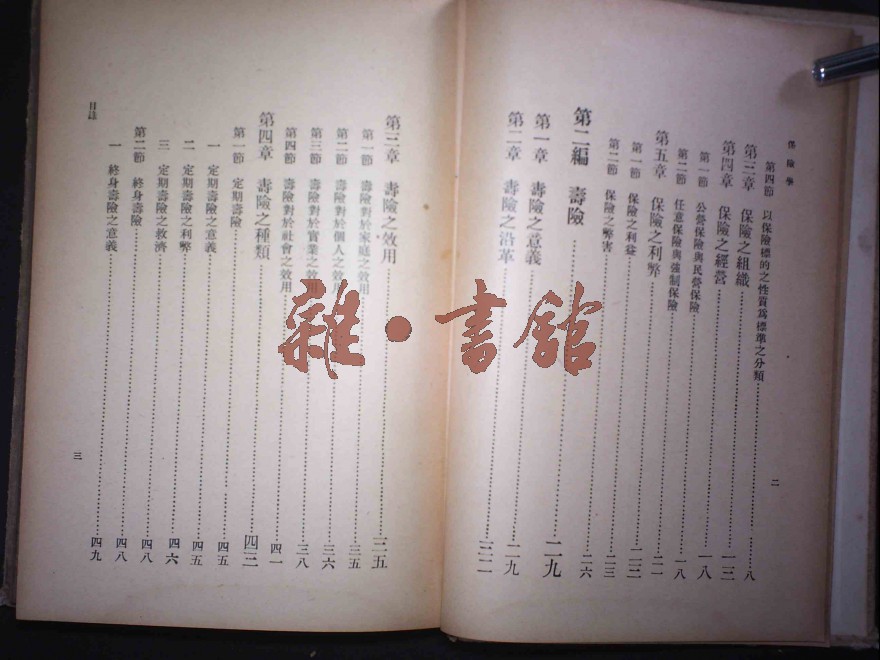 保險學
第四節 以保險標的之性質爲標準之分類……八
第三章 保險之組織……一三
第四章 保險之經營……一八
第一節 公營保險與民營保險……一八
第二節 任意保險與強制保險……二一
第五章 保險之利弊……二二
第一節 保險之利益……二三
第二節 保險之弊害……二六
第二編 壽險……二九
第一章 壽險之意義……二九
第二章 壽險之沿革……三二
二
第三章 壽險之效用……三五
第一節 壽險對於家庭之效用……三五
第二節 壽險對於個人之效用……三六
第三節 壽險對於實業之效用……三八
第四節 壽險對於社會之效用……四一
第四章 壽險之種類……四三
第一節 定期壽險……四五
一 定期壽險之意義……四五
二 定期壽險之利弊……四六
三 定期壽險之救濟……四八
第二節 終身壽險……四八
一 終身壽險之意義……四九
目錄
三
雜·書館